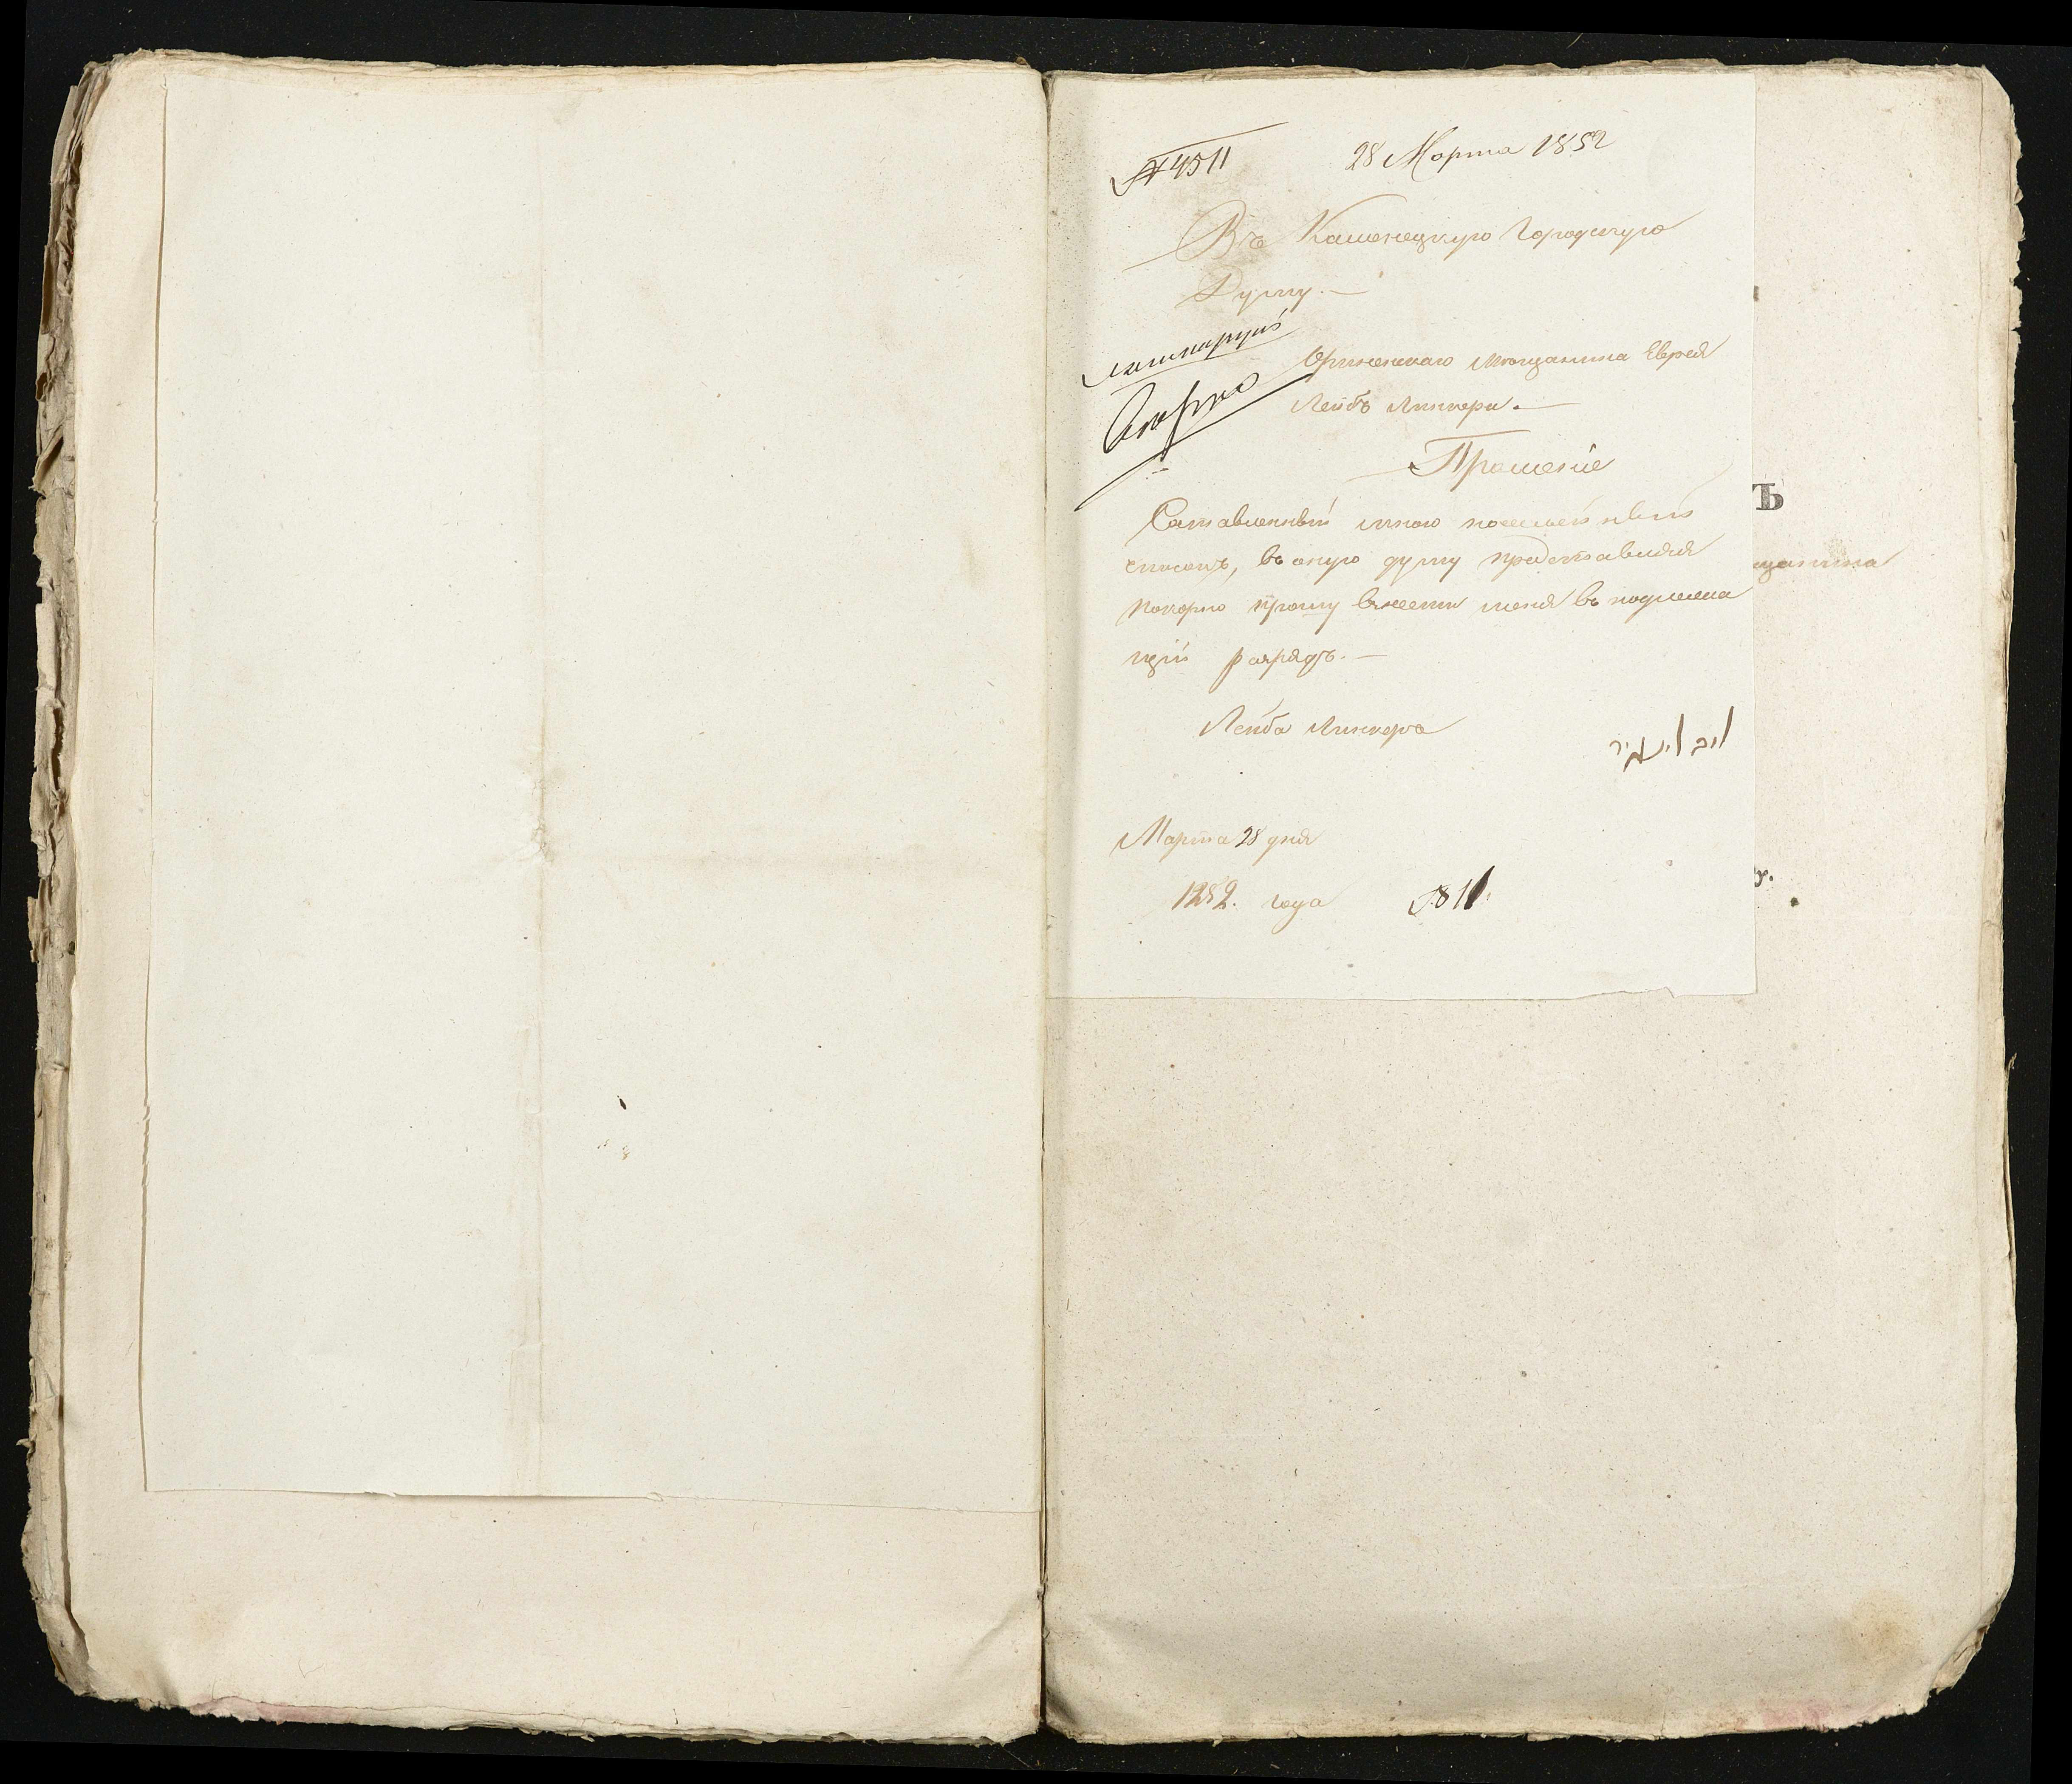 № 4511 28 Марта 1852
Въ Каменецкую Городскую
Думу. —
Оринскаго мещанина Еврея
Лейбъ Линкера. —
Прошеніе
Составленный мною посемейный
списокъ, въ оную думу представляя
покорно прошу внести меня въ подлежа
щій разрядъ. —
Лейба Линкера
Марта 28 дня
1852. года
ъ
щанина